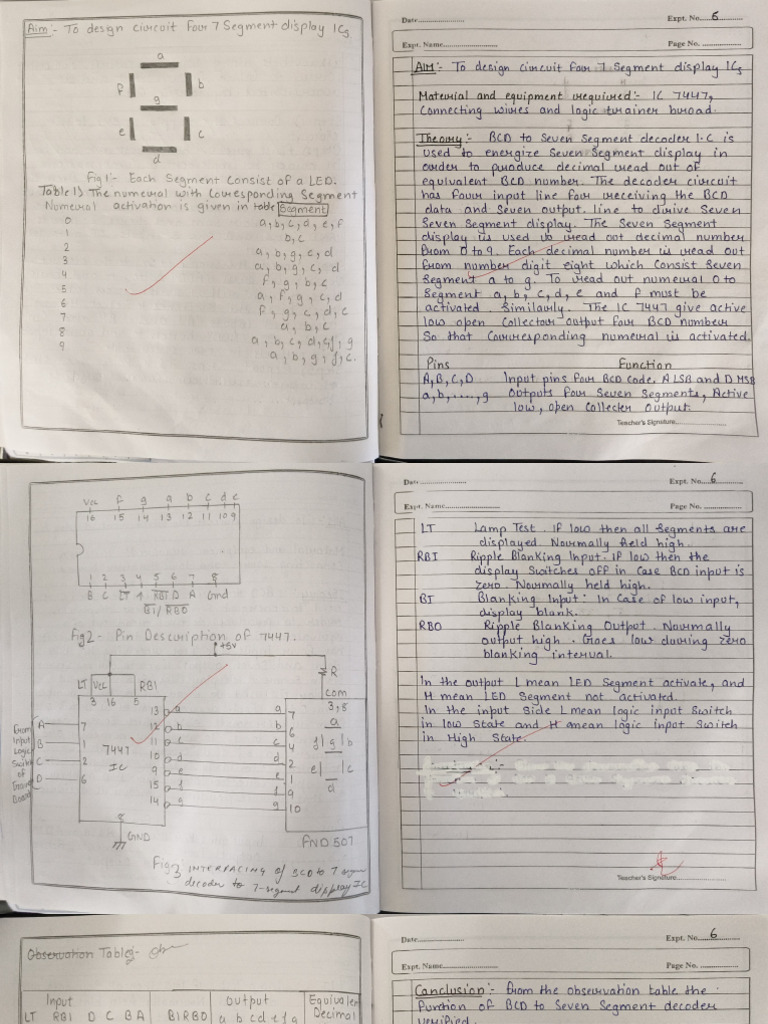 Aim:- To design circuit four 7 Segment display ICs
a
f b
g
e c
d
Fig 1- Each Segment Consist of a LED.
Table 1) The numeral with Corresponding Segment
Numeral activation is given in table Segment
0 a,b,c,d,e,f
1 b,c
2 a,b,g,e,d
3 a,b,g,c,d
4 f,g,b,c
5 a,f,g,c,d
6 f,g,c,d,e
7 a,b,c
8 a,b,c,d,e,f,g
9 a,b,g,f,c.
Date Expt. No. 6
Expt. Name Page No.
Aim:- To design circuit four 7 Segment display ICs
Material and equipment required:- IC 7447,
Connecting wires and logic trainer broad.
Theory:- BCD to Seven Segment decoder I.C. is
used to energize Seven Segment display in
order to produce decimal read out of
equivalent BCD number. The decoder circuit
has four input line for receiving the BCD
data and Seven output. line to drive Seven
Seven Segment display. The Seven Segment
display is used to read out decimal number
from 0 to 9. Each decimal number is read out
from number digit eight which Consist Seven
Segment a to g. To read out numeral 0 to
Segment a, b, c, d, e and f must be
activated. Similarly. The IC 7447 give active
low open Collector output four BCD number
So that Corresponding numeral is activated.
Pins Function
A,B,C,D Input pins four BCD code, A LSB and D MSB
a,b,....,g Outputs four Seven Segments, Active
low, open Collecter output.
Teacher's Signature
Vcc f g a b c d e
16 15 14 13 12 11 10 9
1 2 3 4 5 6 7 8
B C LT 4 RBI D A Gnd
BI/RBO
Fig 2- Pin Description of 7447.
+5v
R
LT Vcc RBI
3 16 5
com
3,8
From Input Logic Switch of Board
A 7
B 1
C 2
D 6
7447
IC
13 a a 7
12 b b 6
11 c c 4
10 d d 2
9 e e 1
15 f f 9
14 g g 10
a
f g b
e c
d
8
GND
FND 507
Fig 3 INTERFACING of BCD to 7 segm
decoder to 7-segment display IC
Date Expt. No. 6
Expt. Name Page No.
LT Lamp Test. If low then all Segments are
displayed. Normally held high.
RBI Ripple Blanking Input. if low then the
display Switches off in Case BCD input is
zero. Normally held high.
BI Blanking Input: In Case of low input,
display blank.
RBO Ripple Blanking Output. Normally
output high. Goes low during zero
blanking interval.
In the output L mean LED Segment activate, and
H mean LED Segment not activated.
In the input Side L mean logic input Switch
in low State and H mean logic input Switch
in High State.
Teacher's Signature
Observation Table:-
Input Output Equivalen
LT RBI D C B A BIRBO a b c d e f g Decimal
Date Expt. No. 6
Expt. Name Page No.
Conclusion:- from the observation table the
function of BCD to Seven Segment decoder
verified.